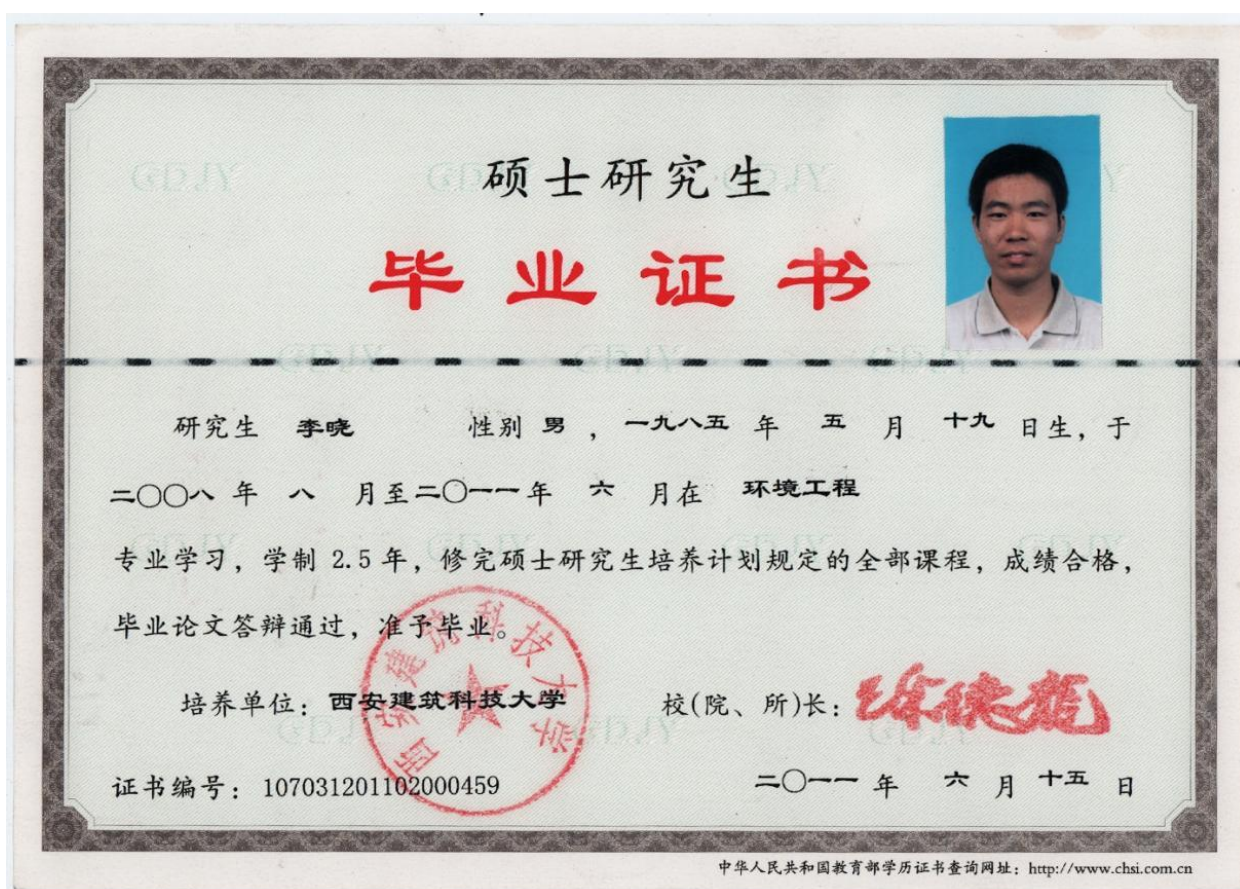 硕士研究生
毕业证书
研究生 李晓 性别 男 ，一九八五 年 五 月 十九 日生，于
二〇〇八 年 八 月至二〇一一年 六 月在 环境工程
专业学习，学制 2.5 年，修完硕士研究生培养计划规定的全部课程，成绩合格，
毕业论文答辩通过，准予毕业。
培养单位：西安建筑科技大学 校(院、所)长：徐德龙
西安建筑科技大学
证书编号：107031201102000459 二〇一一 年 六 月 十五 日
中华人民共和国教育部学历证书查询网址：http://www.chsi.com.cn